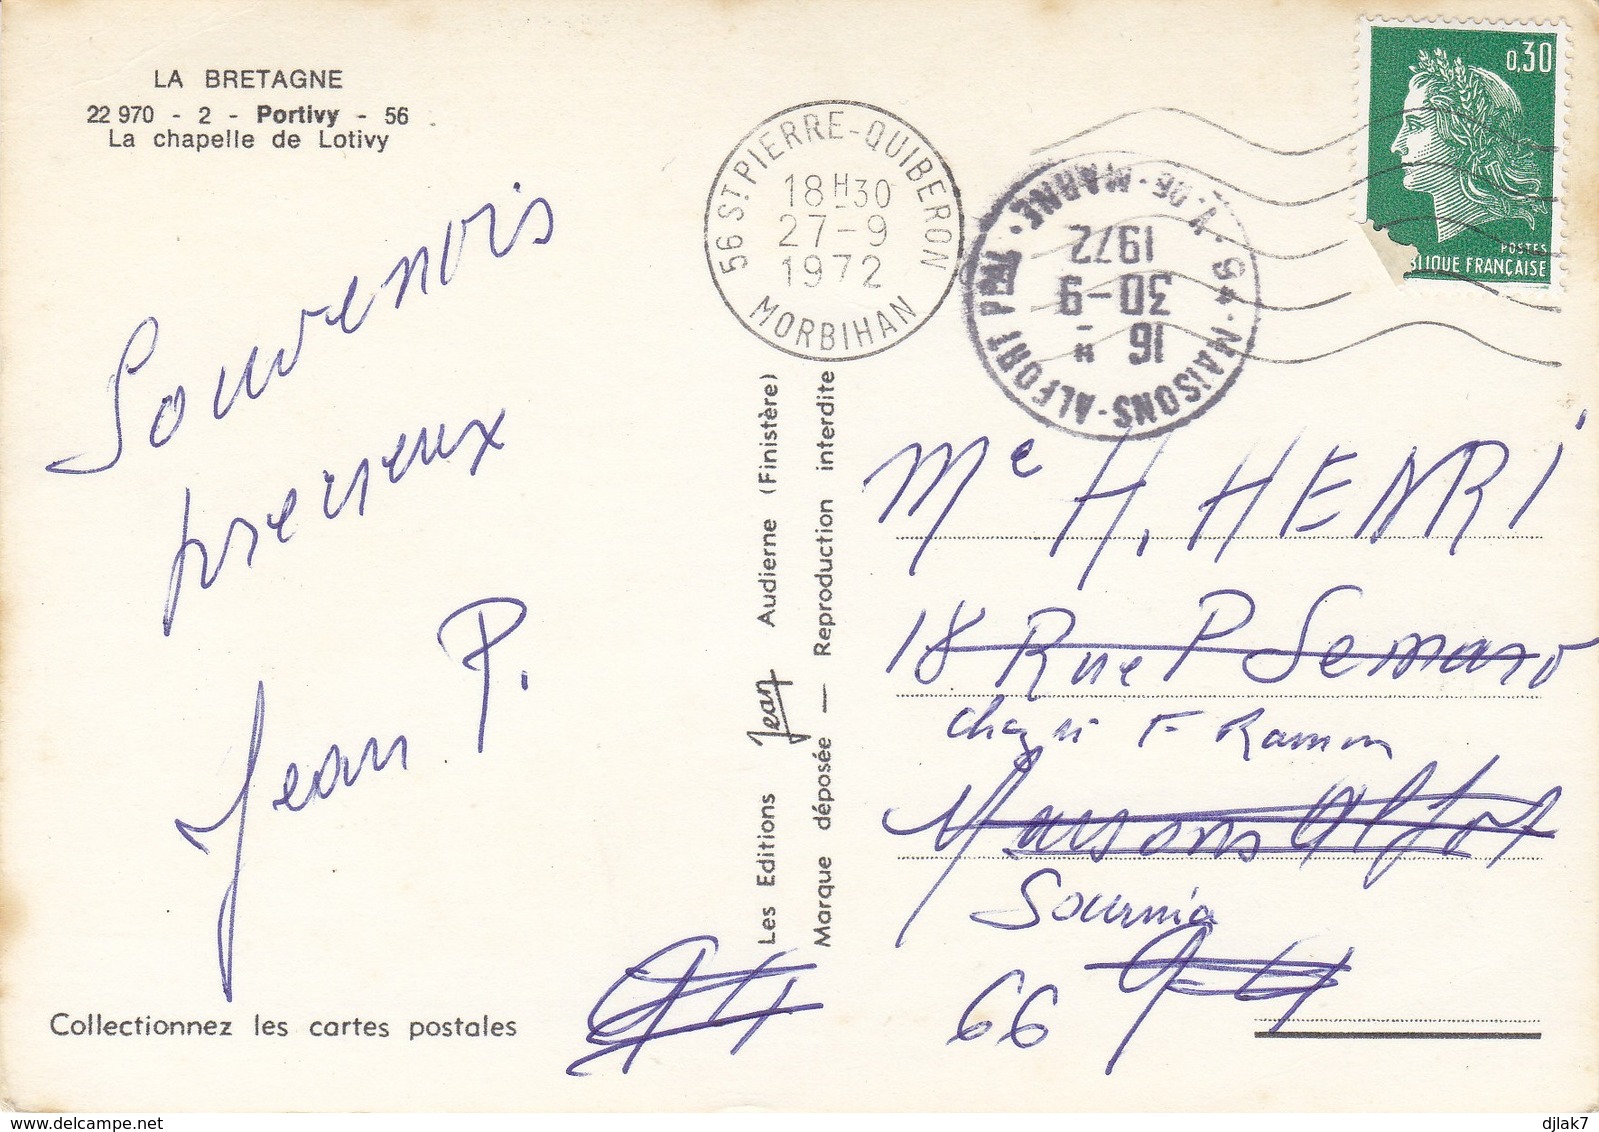 LA BRETAGNE
22 970 - 2 - Portivy - 56
La chapelle de Lotivy
0,30
POSTES
BLIQUE FRANÇAISE
56 ST PIERRE-QUIBERON
18H30
27-9
1972
MORBIHAN
94 - MAISONS-ALFORT PPAL
V. DE - MARNE
16 H
30-9
1972
Souvenirs
precieux
Jean P.
Les Editions Jean Audierne (Finistère)
Marque déposée — Reproduction interdite
Me H. HENRI
18 Rue P Semard
F Ramon
Maisons Alfort
Sournia
94
66
94
Collectionnez les cartes postales
djlak7